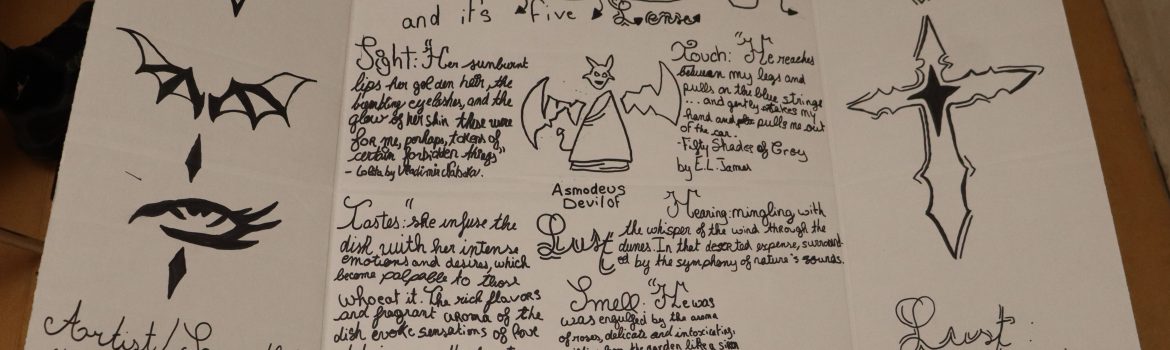 and it's five Lense
Sight: "Her sunburnt
lips her golden hair, the
eyelashes, and the
glow of her skin these were
for me, perhaps, tokens of
certain forbidden things"
- Lolita by Vladimir
Touch: "He reaches
between my legs and
pulls on the blue strings
... and gently takes my
hand and pulls me out
of the car.
-Fifty Shades of Grey
by E.L. James
Asmodeus
Devil of
Lust
Tastes: "she infuse the
dish with her intense
emotions and desires, which
become palpable to those
who eat it. The rich flavors
and fragrant aroma of the
dish evoke sensations of love
Hearing: mingling with
the whisper of the wind through the
dunes. In that deserted expense, surround-
ed by the symphony of nature's sounds.
Smell: "He was
was engulfed by the aroma
of roses, delicate and intoxicating,
the garden like a
Artist/
Lust: